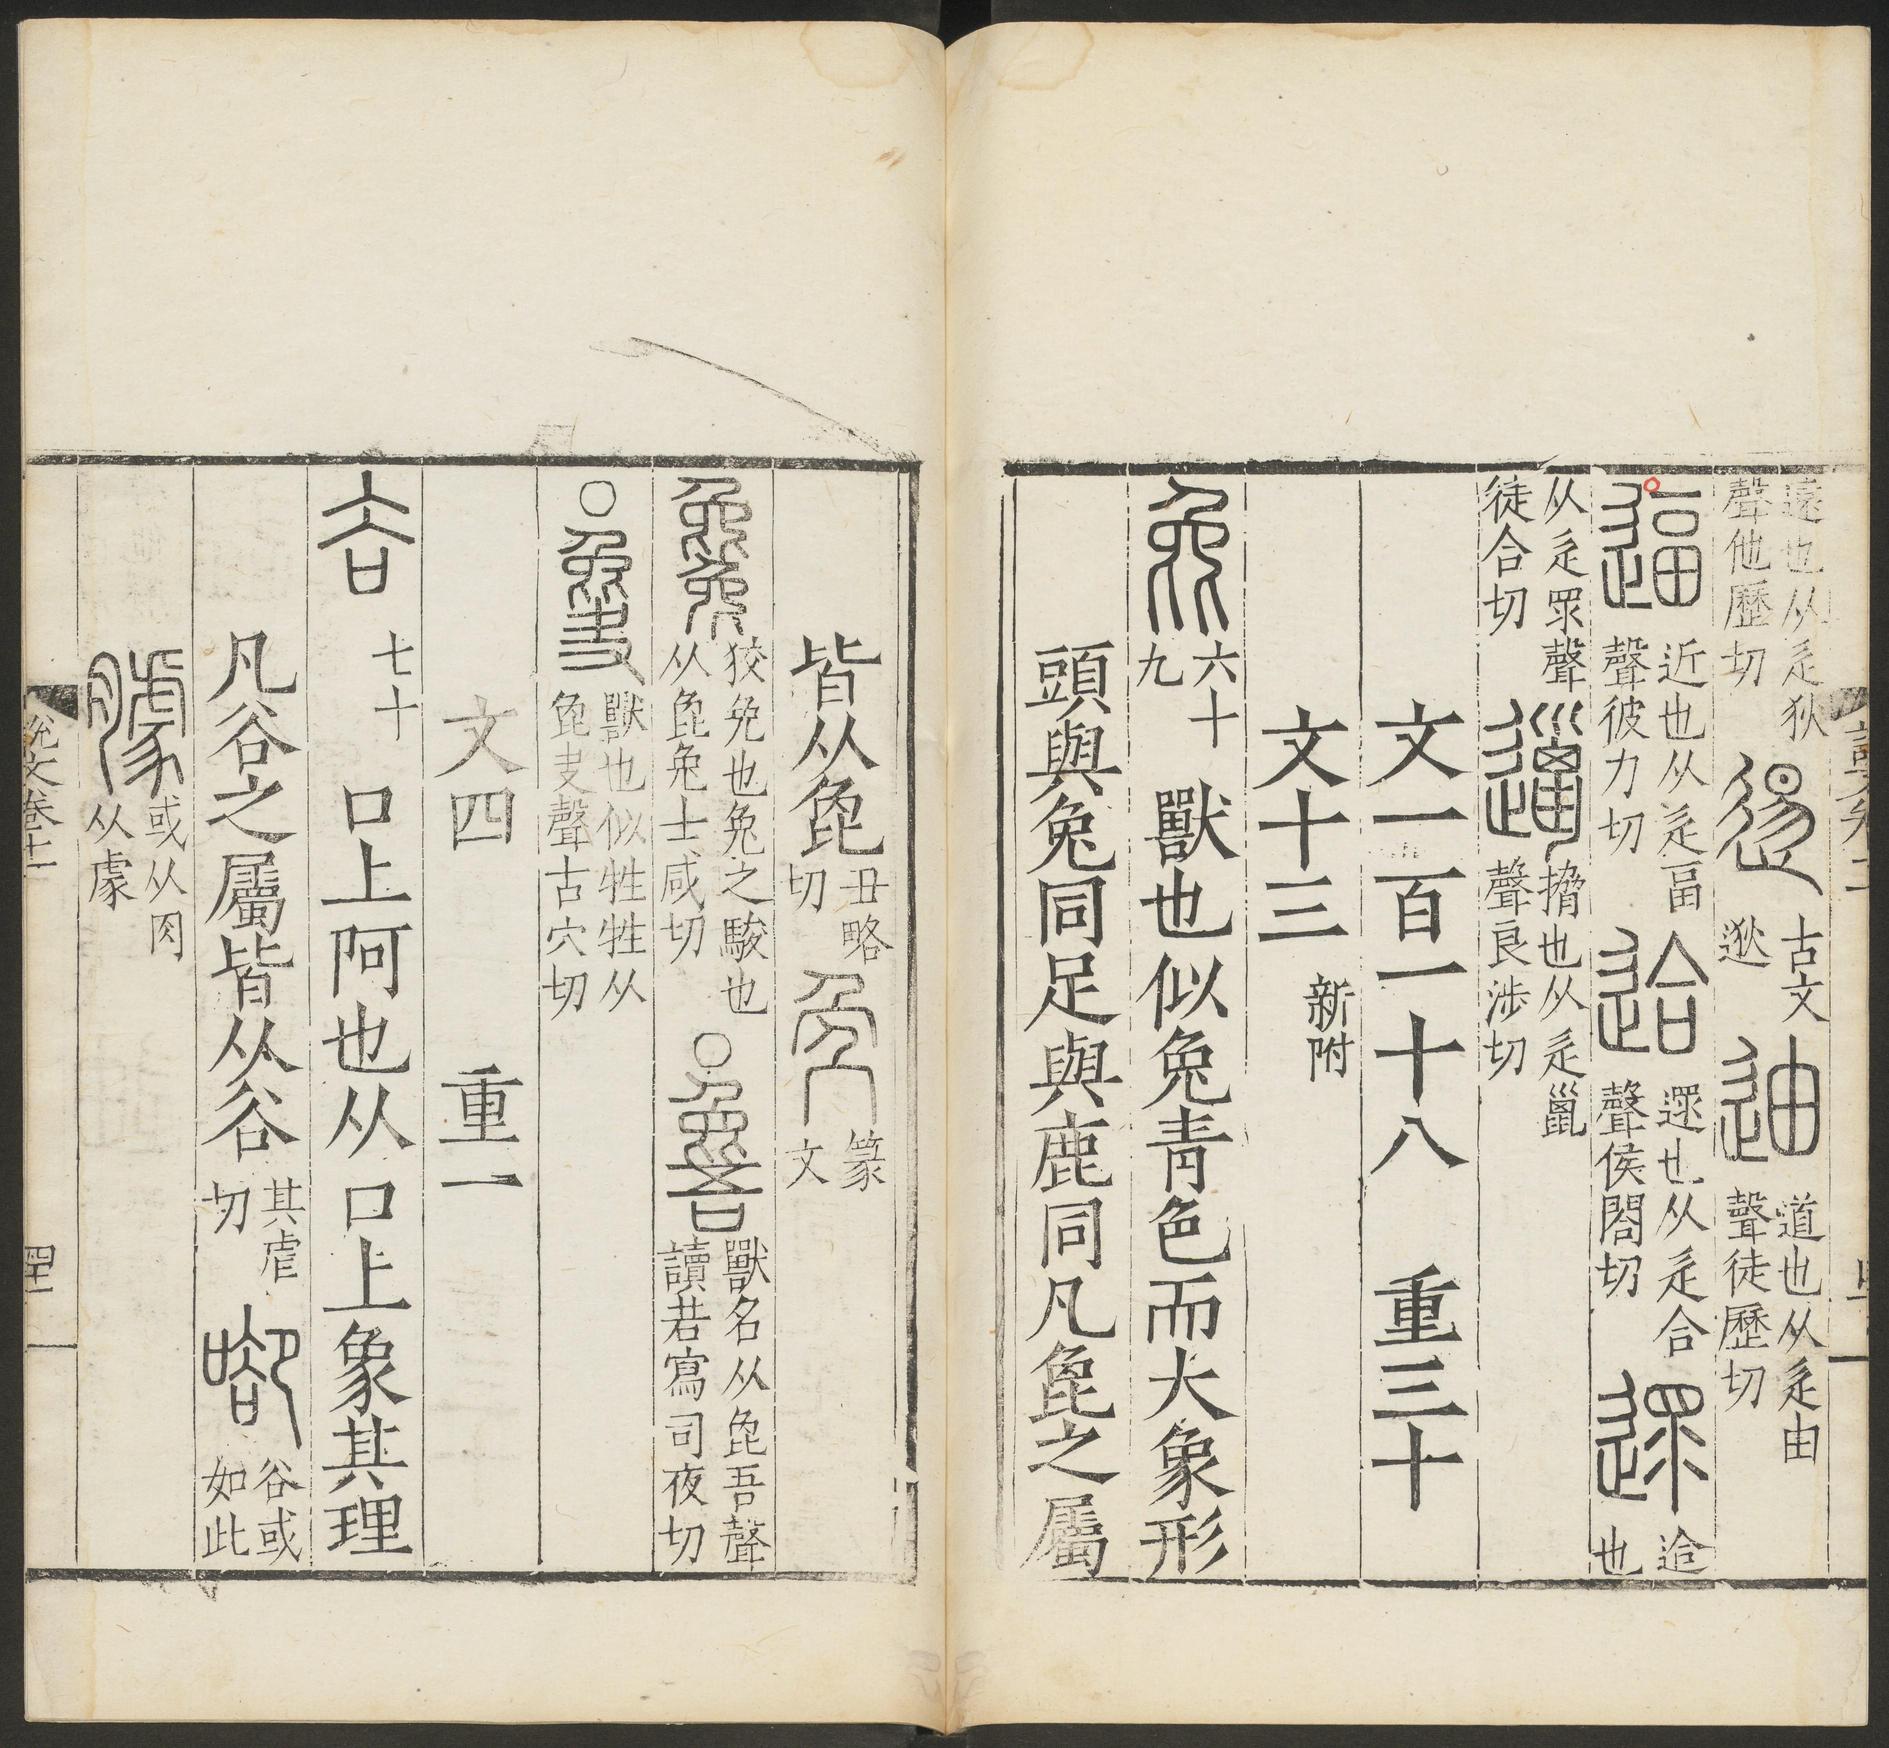 遠也从辵狄
聲他歷切
逷
古文
逖
迪
道也从辵由
聲徒歷切
逼
近也从辵畐
聲彼力切
迨
遝也从辵合
聲侯閤切
遝
迨
也
从辵眔聲
徒合切
邋
搚也从辵巤
聲良涉切
文一百一十八 重三十
文十三 新附
㲋
六十
九
獸也似兔青色而大象形
頭與兔同足與鹿同凡㲋之屬
皆从㲋
丑略
切
篆
文
毚
狡兔也兔之駿也
从㲋兔士咸切
○
獸名从㲋吾聲
讀若寫司夜切
○
獸也似牲牲从
㲋夬聲古穴切
文四 重一
谷
七十
口上阿也从口上象其理
凡谷之屬皆从谷
其虐
切
谷或
如此
臄
或从肉
从豦
說文卷十二